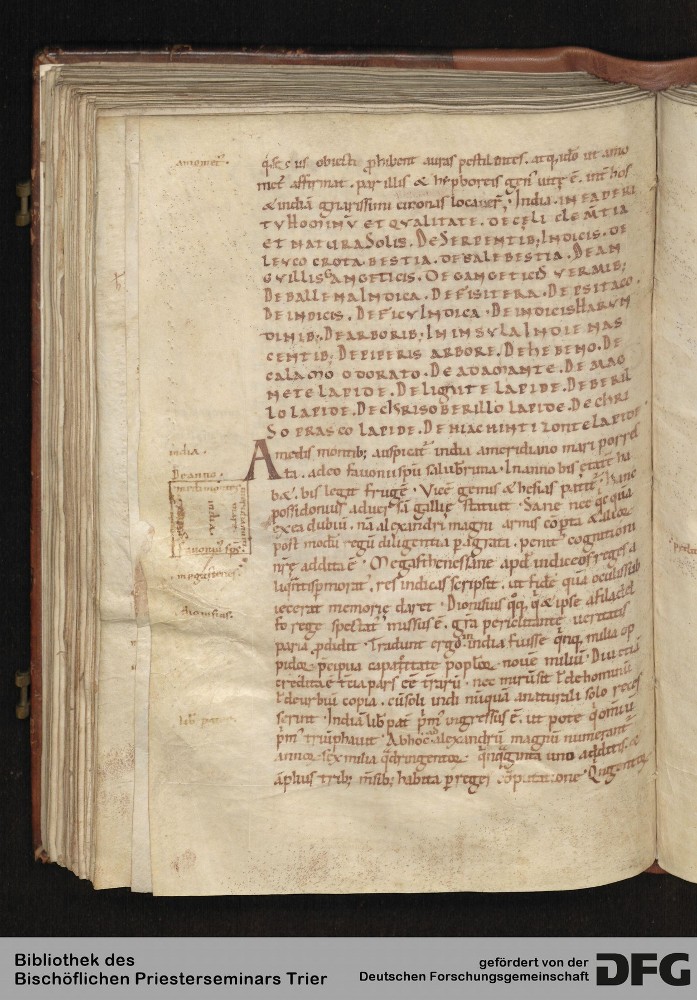 amomet᷑.
qđ cuius obiectu ꝓhibent᷑ auras pestilentes. atq; ideo ut amo
met᷑ affirmat. par illis & hẏpboreis gen᷑ uitę ē. int᷑ hos
& indiā gnarissimi ciconas locauer᷑. India. IN EADE RI
TV HOMINV̄ ET QVALITATE. DE CĘLI CLEM̄TIA
ET NATURA SOLIS. DE SERPENTIB; INDICIS. DE
LEVCO CROTA BESTIA. DE EALE BESTIA. DE AN
GVILLIS GANGETICIS. DE GANGETICIS VERMIB;
DE BALLENA INDICA. DE FISITERA. DE PSITACO.
DE INDICIS. DE FICV INDICA. DE INDICIS HARVN
DINIB;. DE ARBORIB; IN INSVLA INDIE NAS
CENTIB; DE PIPERIS ARBORE. DE HEBENO. DE
CALAMO ODORATO. DE ADAMANTE. DE MAG
NETE LAPIDE. DE LIGNITE LAPIDE. DE BERIL
LO LAPIDE. DE CHRISOBERILLO LAPIDE. DE CHRI
SOPRASCO LAPIDE. DE HIACHINTIZONTE LAPIDE.
india.
A medis montib; auspicat᷑ india. a meridiano mari porres
De anno.
ta. adeo fauonii spū saluberrima. In anno bis ętatē ha
medi montes
meridianum mare
india
fauonius spc̄
bet. bis legit frugē. Vice hiemis & hesias patit᷑. Hanc
possidonius aduersā gallię statuit. Sane nec ęę qua
ex ea dubiū. nā alexandri magni armis cōpta & alioꝝ
post modū regū diligentia peragrata. penit᷑ cognitioni
nr̄ę addita ē. Megasthenes sane apd indicos reges a
megastenes.
liqntisp morat᷑. res indicas scripsit. ut fidē quā oculis sub
iecerat memorię daret. Dionisius qq;. q & ipse a filadel
dionisius.
fo rege spectat᷑ missus ē. gr̄a periclitandę ueritatis
paria ꝓdidit. Tradunt ergo in india fuisse qnq; milia op
pidoꝝ pcipua capacitate. populoꝝ nouē miliū. Diu etiā
credita ē t᷑cia pars eē terrarū. nec mirū sit ł de hominū
ł de urbiū copia. cū soli indi nūquā a naturali solo reces
lib̄ pater.
serint. Indiā lib̄ pat᷑ pm᷑ ingressus ē. ut pote q omiū
pm᷑ triūphauit. Ab hoc ad alexandrū magnū numerant᷑
annoꝝ sex milia qdringentoꝝ qnquaginta uno additis. &
āplius trib; m̄sib; habita p reges cōputatione. Qi ngentos
Bibliothek des
Bischöflichen Priesterseminars Trier
gefördert von der
Deutschen Forschungsgemeinschaft
DFG